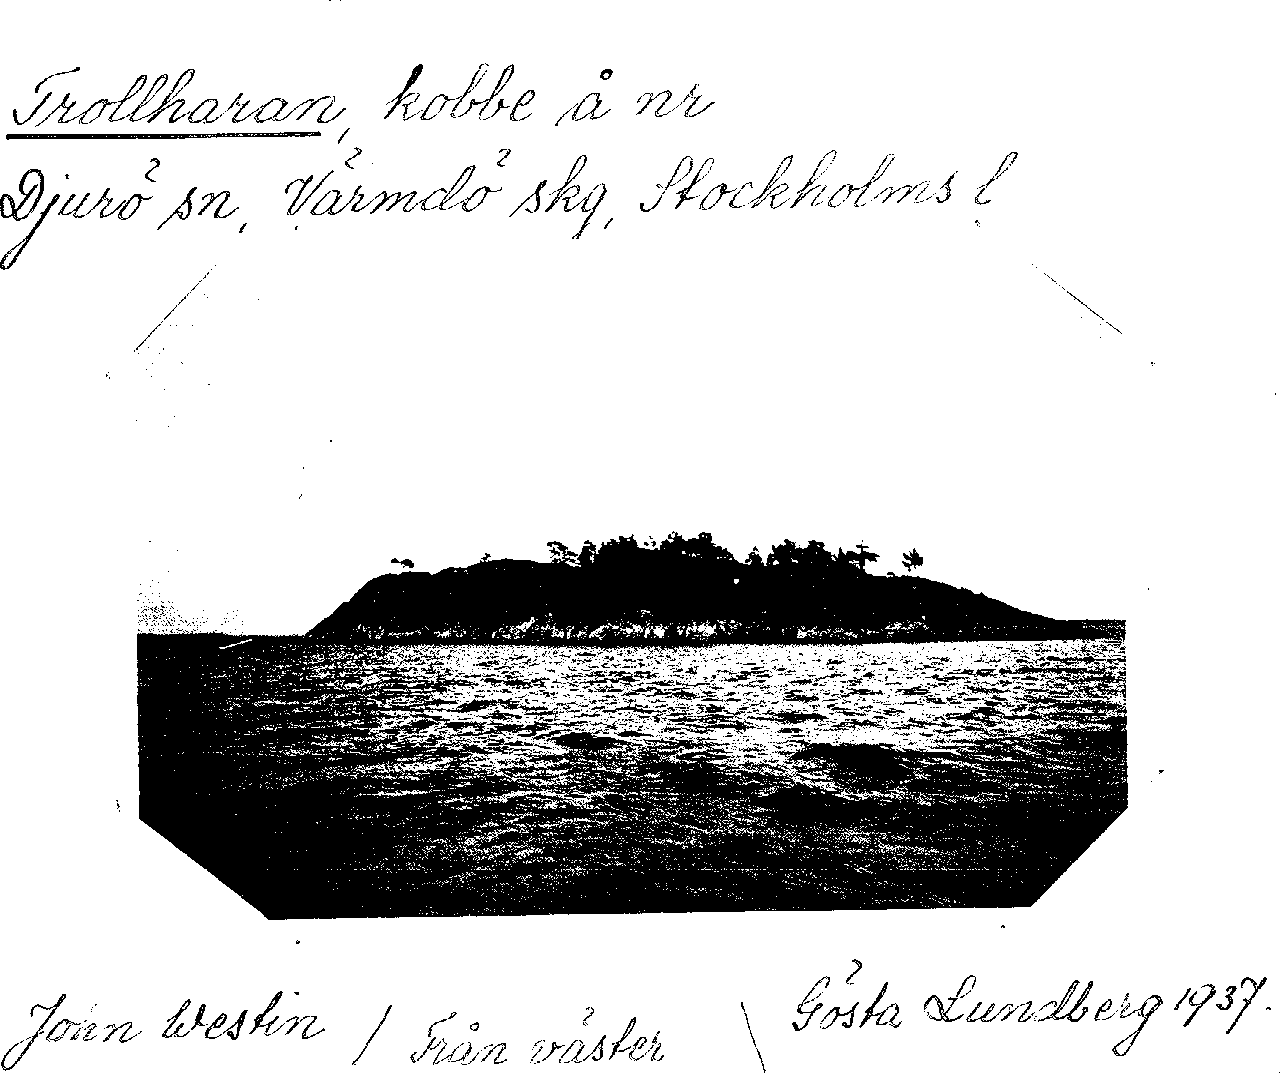 Trollharan, kobbe å nr
Djurö sn, Värmdö skg, Stockholms l
John Westin / Från väster \ Gösta Lundberg 1937.